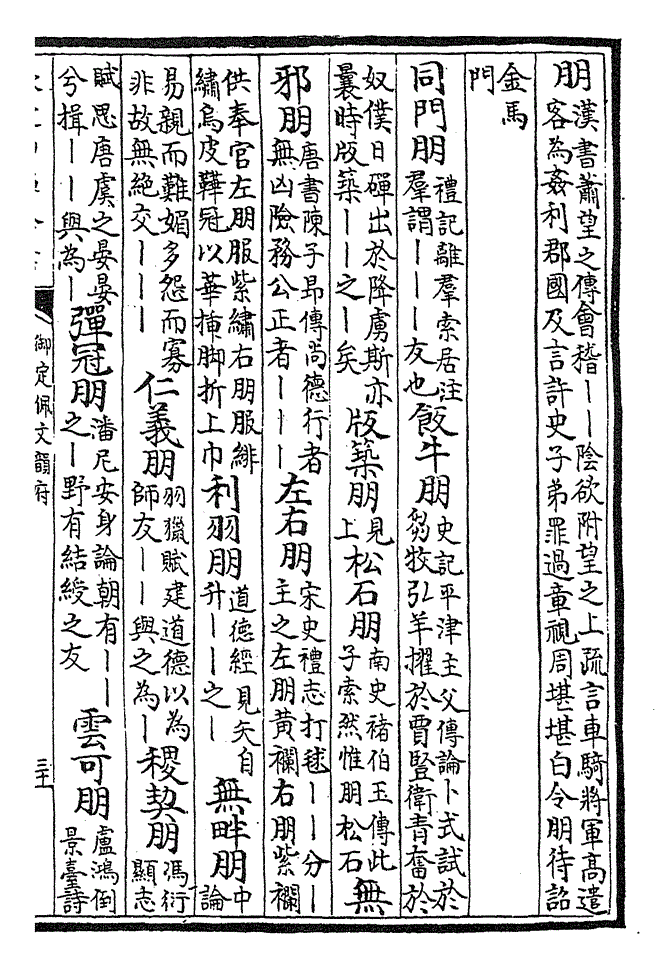 朋
漢書蕭望之傳會稽丨丨陰欲附望之上疏言車騎將軍高遣
客為姦利郡國及言許史子弟罪過章視周堪堪白令朋待詔
金馬
門
同門朋
禮記離羣索居注
羣謂丨丨丨友也
飯牛朋
史記平津主父傳論卜式試於
芻牧弘羊擢於賈豎衛青奮於
奴僕日磾出於降虜斯亦
曩時版築丨丨之丨矣
版築朋
見
上
松石朋
南史褚伯玉傳此
子索然惟朋松石
無
邪朋
唐書陳子昂傳尚德行者
無凶險務公正者丨丨丨
左右朋
宋史禮志打毬丨丨分丨
主之左朋黃襴右朋紫襴
供奉官左朋服紫繡右朋服緋
繡烏皮鞾冠以華插脚折上巾
利羽朋
道德經見矢自
升丨丨之丨
無畔朋
中
論
易親而難媚多怨而寡
非故無絕交丨丨丨
仁義朋
羽獵賦建道德以為
師友丨丨與之為丨
稷契朋
馮衍
顯志
賦思唐虞之晏晏
兮揖丨丨與為丨
彈冠朋
潘尼安身論朝有丨丨
之丨野有結綬之友
雲可朋
盧鴻倒
景臺詩
御定佩文韻府
三十